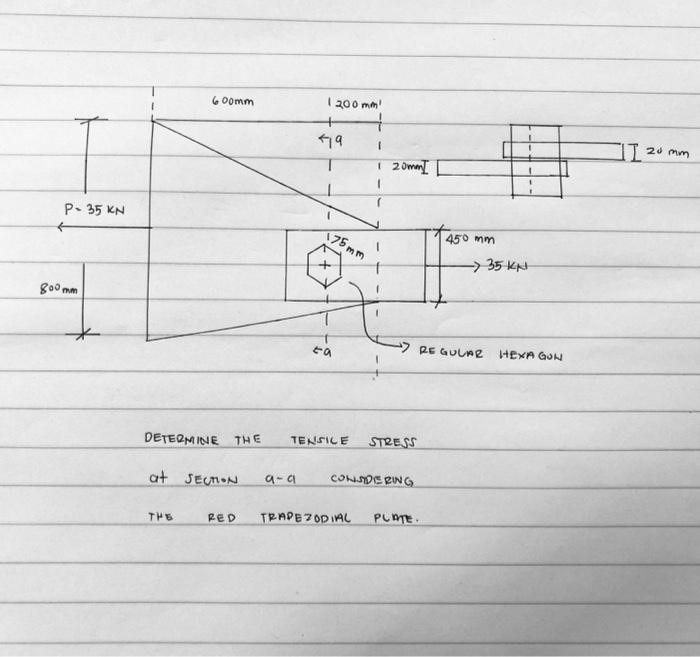 600mm
200 mm
a
20 mm
20mm
P- 35 KN
75 mm
450 mm
35 KN
800mm
a
REGULAR HEXAGON
DETERMINE THE TENSILE STRESS
at SECTION a-a CONSIDERING
THE RED TRAPEZODIAL PLATE.